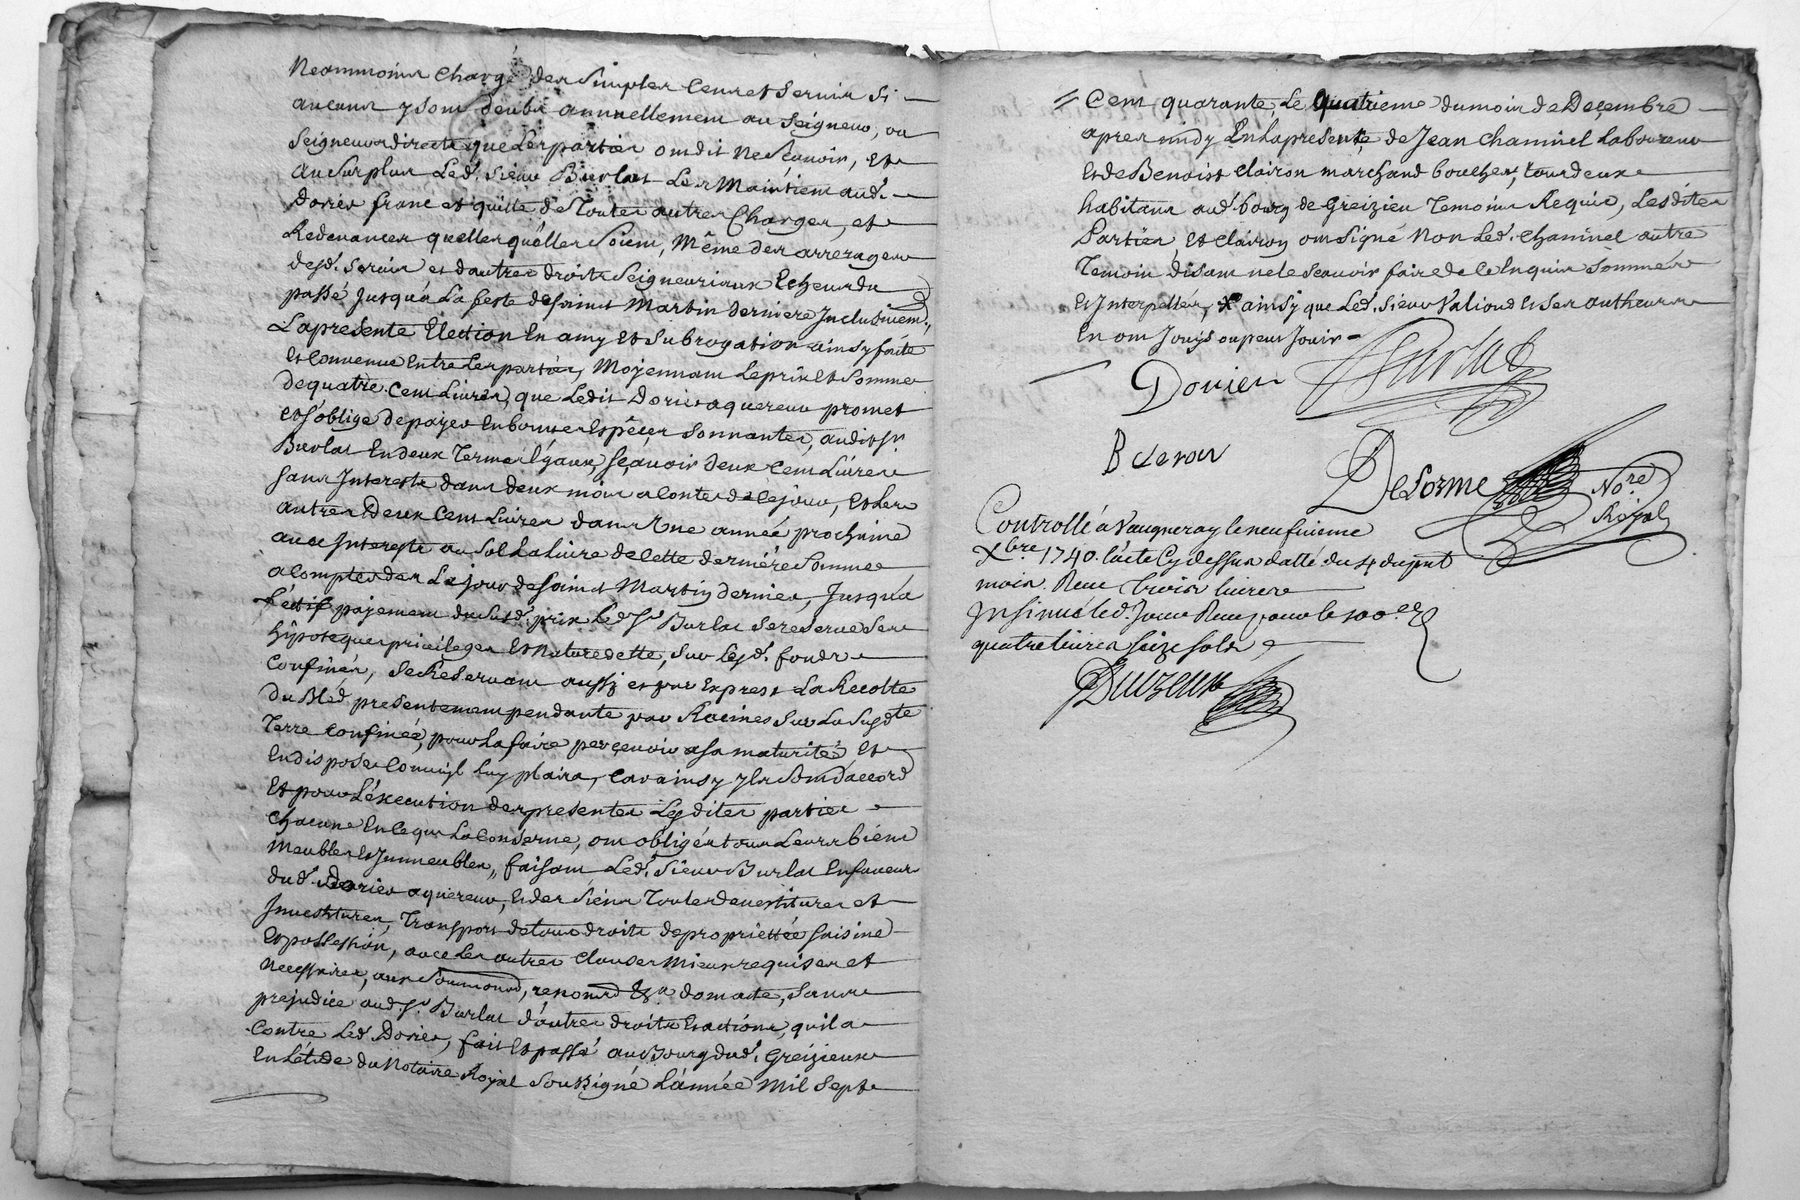 Neammoins chargé des simples cens et servis si
aucuns y sont deubs annuellement au seigneur, ou
seigneurs directs que les parties ont dit ne sçavoir, et
au surplus Led. sieur Burlat Les Maintient aud.
Dorier franc et quitte de Toutes autres Charges, et
Redevances quelles quélles soient, Même des arrerages
desd. servis et d'autres droits seigneuriaux Echeus du
passé Jusquá La feste de saint Martin derniere Inclusivemt.
La presente Election En amy et Subrogation ainsy faite
et Convenue Entre Les parties, Moyennant Le prix et somme
de quatre Cent Livres, que Ledit Dorier aquereur promet
et s'oblige de payer En bonnes Espêces sonnantes, audit sr.
Burlat En deux Termes Egaux, sçavoir deux Cent Livres
sans Interests dans deux mois a Conter de Ce jour, et Les
autres Deux Cent Livres dans Une année prochaine
avec Interests au sol La Livre de Cette derniére Somme
a Compter des Le jour de saint Martin dernier, Jusquá
féctif pajement du susd. prix Led. Sr. Burlat se reserve ses
hÿpoteques privileges Et nature dette, sur Lesd. fonds
Confinés, se Reservant aussi et par Exprest La Recolte
du Bled presentement pendante par Racines sur La susdte
Terre Confinée, pour La faire perçevoir a sa maturité Et
En disposer Comme il Luy plaira, Car ainsy ils sont d'accord
Et pour L'éxecution des presentes Lesdites parties
Chacune En Ce que La Conserne, ont obligés tous Leurs biens
Meubles et Immeubles, faisant Led. Sieur Burlat En faveur
dud. Dorier aquereur, et des siens Toutes devestitures et
Investitures, Transport de tous droits de propriéttée saisine
Et possession, avec Les autres Clauses Mieux requises et
Necessaires, aux soumons, renons &a dont acte, sans
prejudice aud. Sr. Burlat d'autres droits Et actions, quil a
Contre Led. Dorier, fait Et passé au Bourg dud. Greizieux
En L'étude du Notaire Royal Soussigné L'année Mil Sept
Cent quarante, Le Quatrieme du mois de Deçembre
apres midy En La presente de Jean Chaminel Laboureur
Et de Benoist Clairon marchand boucher, tous deux
habitans aud. bourg de Greizieu Temoins Requis, Lesdites
Parties Et Clairon ont signé Non Led. Chaminel autre
Temoin disant ne le sçavoir faire de Ce Enquis sommés
Et Interpellés, x ainsy que Led. sieur Valioud Et ses autheurs
En ont Jouÿs ou peus Jouir
Dorier
Burlat
B Cleron
Delorme Nore.
Royal
Controllé á Vaugneray le neufvieme
Xbre 1740. l'acte Cy dessus datté du 4 du pnt
mois. Reçu trois livres
Insinué led. jour Reçu pour le 100e.
quatre livres seize sols